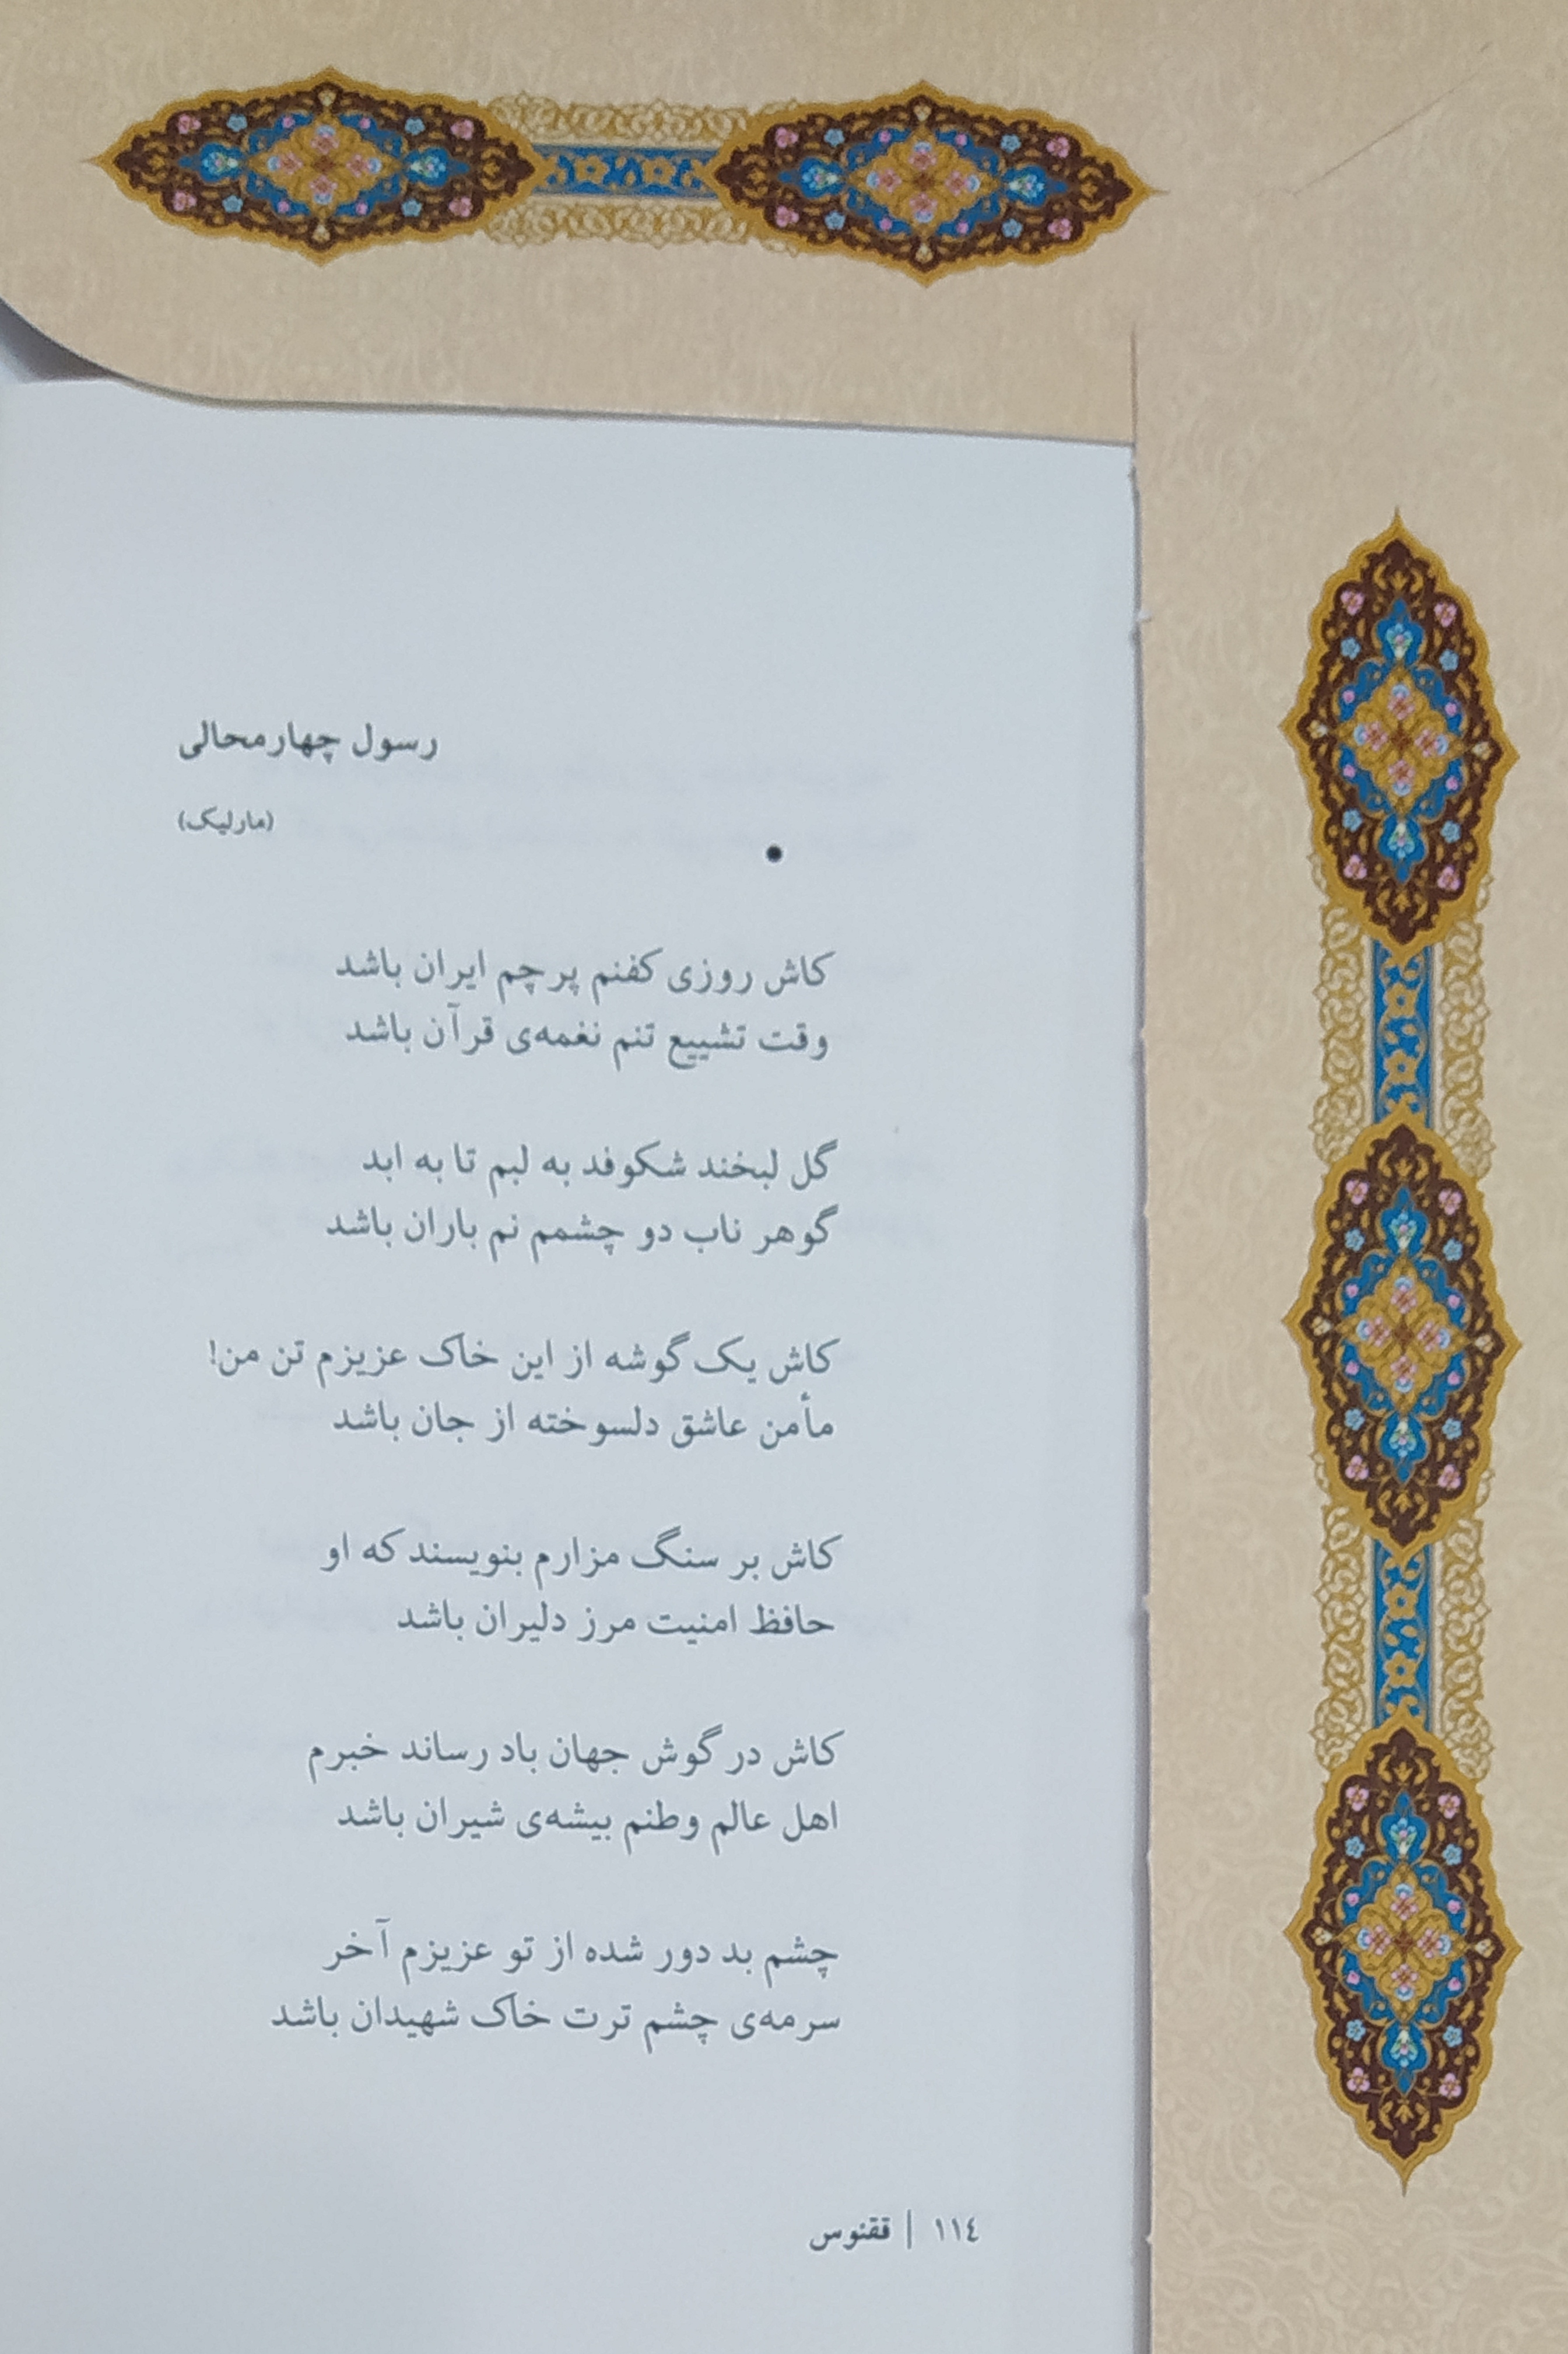 رسول چهارمحالی
(مارلیک)
•
کاش روزی کفنم پرچم ایران باشد
وقت تشییع تنم نغمه‌ی قرآن باشد
گل لبخند شکوفد به لبم تا به ابد
گوهر ناب دو چشمم نم باران باشد
کاش یک گوشه از این خاک عزیزم تن من!
مأمن عاشق دلسوخته از جان باشد
کاش بر سنگ مزارم بنویسند که او
حافظ امنیت مرز دلیران باشد
کاش در گوش جهان باد رساند خبرم
اهل عالم وطنم بیشه‌ی شیران باشد
چشم بد دور شده از تو عزیزم آخر
سرمه‌ی چشم ترت خاک شهیدان باشد
١١٤ | ققنوس